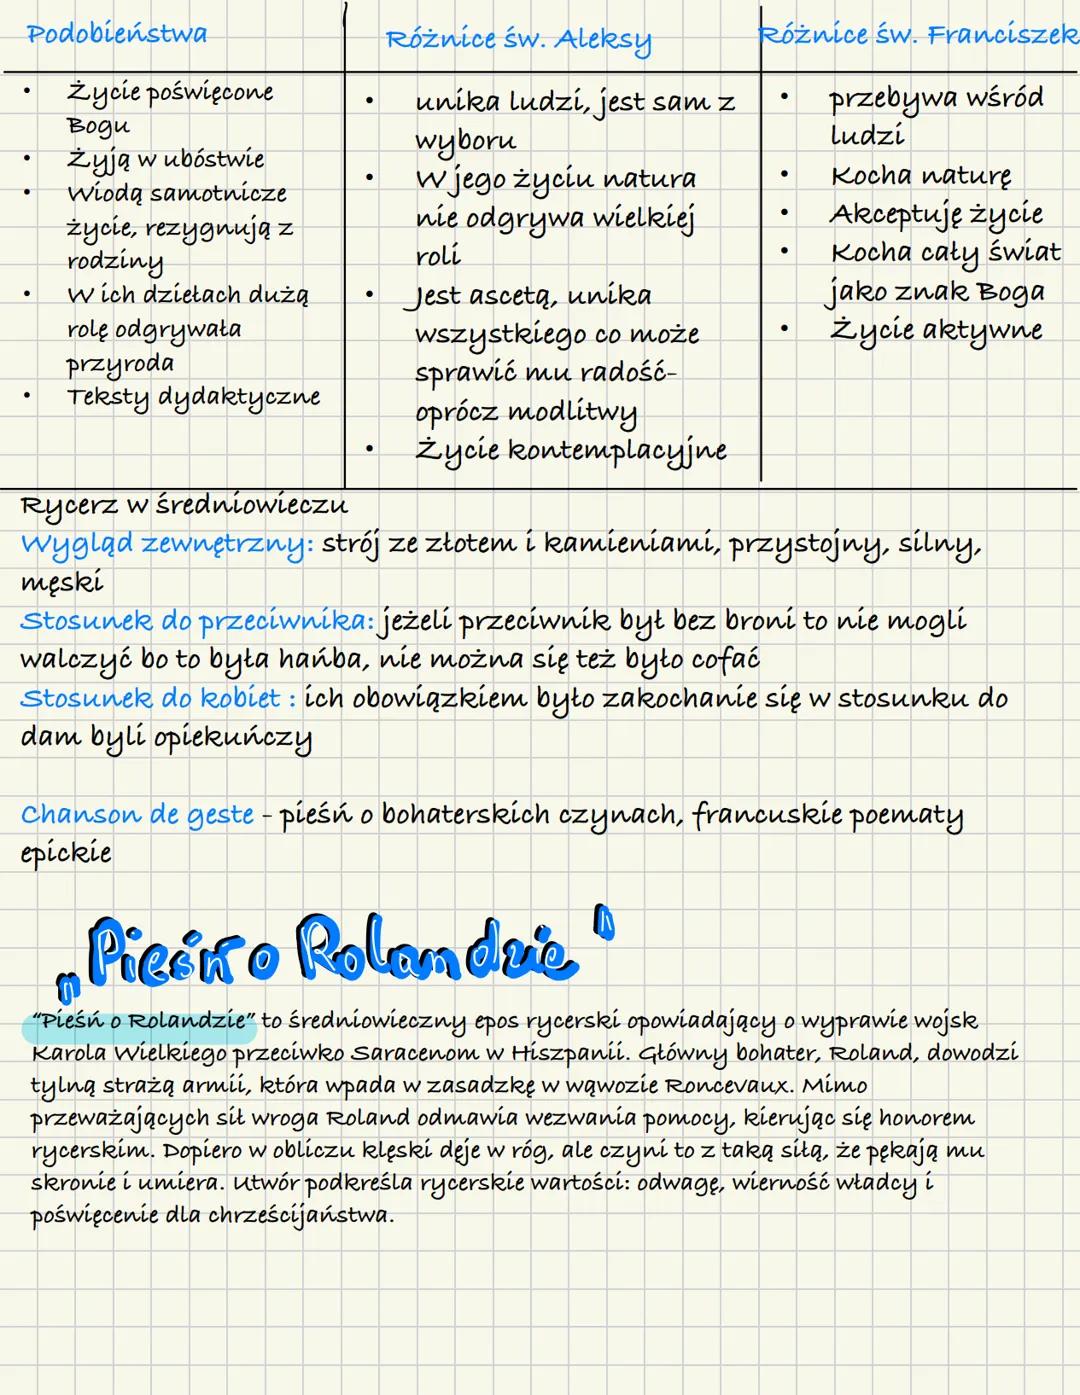 Podobieństwa
• Życie poświęcone
Bogu
• Żyją w ubóstwie
• Wiodą samotnicze
życie, rezygnują z
rodziny
• W ich dziełach dużą
rolę odgrywała
przyroda
• Teksty dydaktyczne
Różnice św. Aleksy
• unika ludzi, jest sam z
wyboru
• W jego życiu natura
nie odgrywa wielkiej
roli
• Jest ascetą, unika
wszystkiego co może
sprawić mu radość-
oprócz modlitwy
• Życie kontemplacyjne
Różnice św. Franciszek
• przebywa wśród
ludzi
• Kocha naturę
• Akceptuję życie
• Kocha cały świat
jako znak Boga
• Życie aktywne
Rycerz w średniowieczu
Wygląd zewnętrzny: strój ze złotem i kamieniami, przystojny, silny,
męski
Stosunek do przeciwnika: jeżeli przeciwnik był bez broni to nie mogli
walczyć bo to była hańba, nie można się też było cofać
Stosunek do kobiet : ich obowiązkiem było zakochanie się w stosunku do
dam byli opiekuńczy
Chanson de geste - pieśń o bohaterskich czynach, francuskie poematy
epickie
„Pieśń o Rolandzie"
"Pieśń o Rolandzie" to średniowieczny epos rycerski opowiadający o wyprawie wojsk
Karola Wielkiego przeciwko Saracenom w Hiszpanii. Główny bohater, Roland, dowodzi
tylną strażą armii, która wpada w zasadzkę w wąwozie Roncevaux. Mimo
przeważających sił wroga Roland odmawia wezwania pomocy, kierując się honorem
rycerskim. Dopiero w obliczu klęski dęje w róg, ale czyni to z taką siłą, że pękają mu
skronie i umiera. Utwór podkreśla rycerskie wartości: odwagę, wierność władcy i
poświęcenie dla chrześcijaństwa.